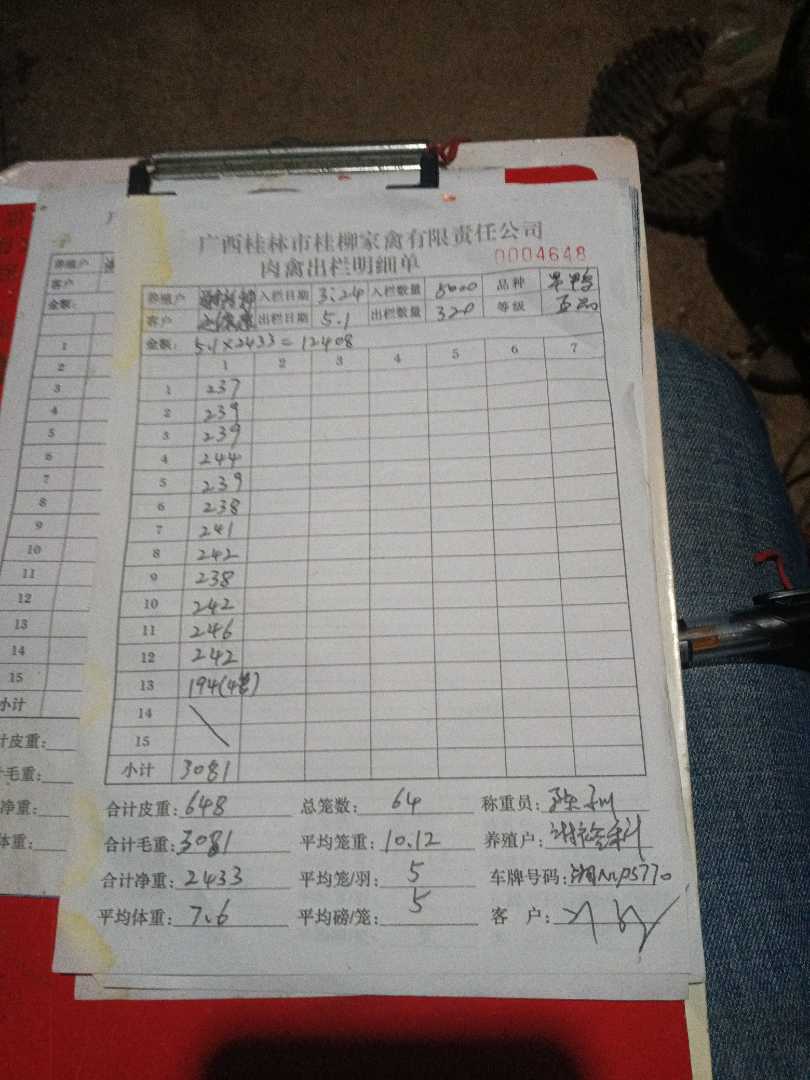 广西桂林市桂柳家禽有限责任公司
肉禽出栏明细单 0004648
养殖户 入栏日期 3.24 入栏数量 5000 品种
客户 出栏日期 5.1 出栏数量 320 等级
金额: 5.1×2433=12408
1 2 3 4 5 6 7
1 237
2 239
3 239
4 244
5 239
6 238
7 241
8 242
9 238
10 242
11 246
12 242
13 194(4笼)
14
15
小计 3081
合计皮重: 648 总笼数: 64 称重员:
合计毛重: 3081 平均笼重: 10.12 养殖户:
合计净重: 2433 平均笼/羽: 5 车牌号码: 湘
平均体重: 7.6 平均磅/笼: 5 客 户:
养殖户
客户
金额:
1
2
3
4
5
6
7
8
9
10
11
12
13
14
15
小计
计皮重:
计毛重:
净重:
体重: